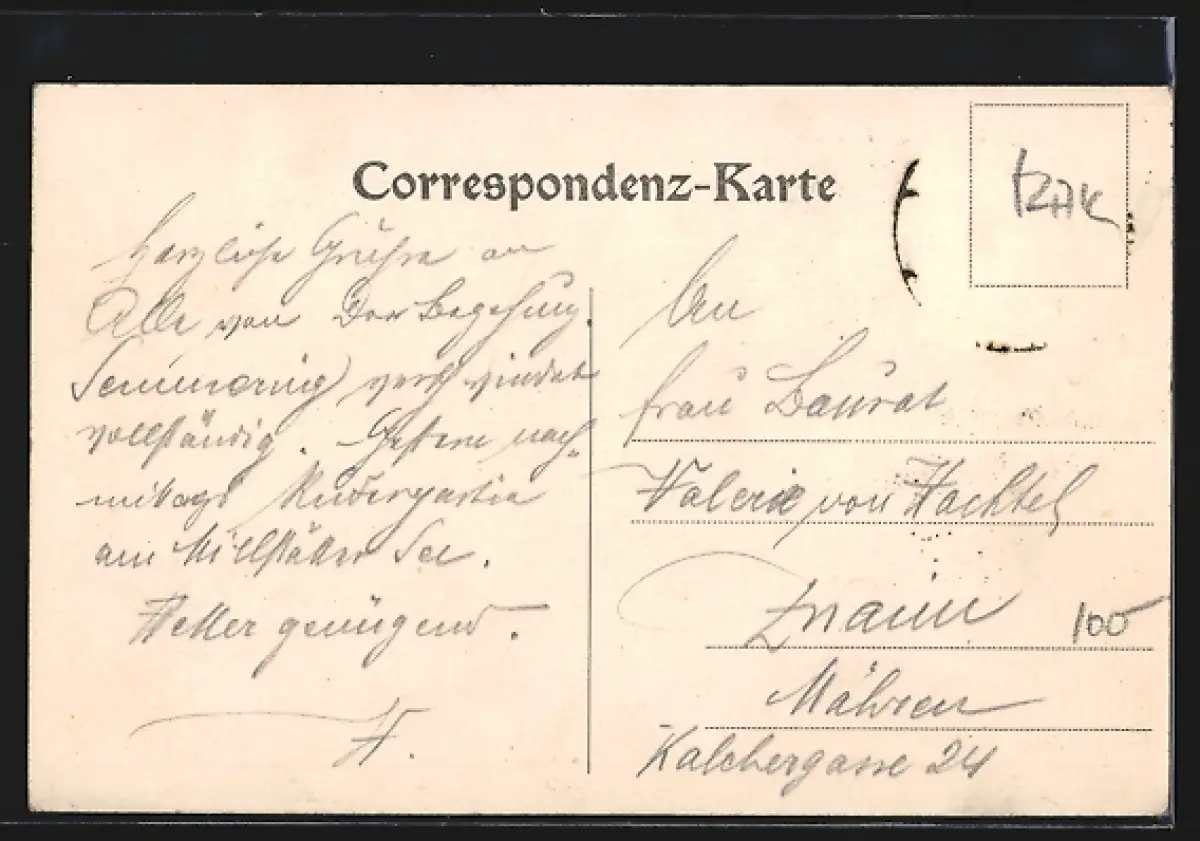 Correspondenz-Karte
Herzliche Grüße an
Alle von Der Begehung.
Semmering
vollständig. Gestern nach-
mittags Ruderpartie
am Millstätter See.
Wetter genügend.
W.
An
Frau Baurat
Valerie von Wachtel
Znaim
Mähren
Kalchergasse 24
100